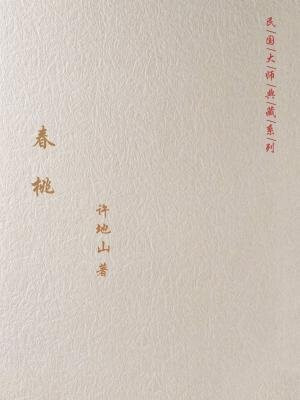 民|国|大|师|典|藏|系|列
春桃
许地山著